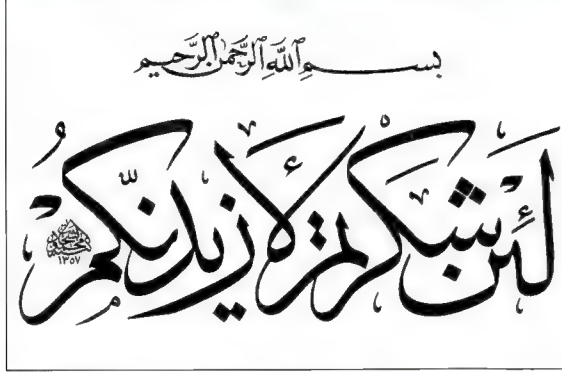 بسم اللَّهِ الرَّحمن الرَّحيم
لَئِن شكرتم لأزيدنّكم
١٣٥٧